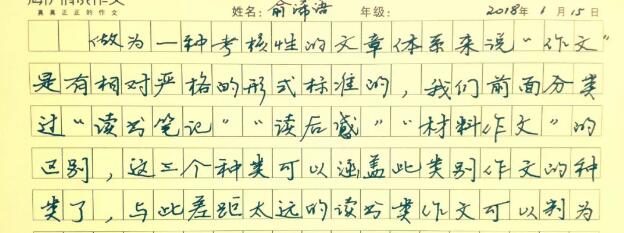 真真正正的作文
姓名: 俞沛语 年级: 2018年1月15日
做为一种考核性的文章体系来说“作文”
是有相对严格的形式标准的,我们前面分类
过“读书笔记”“读后感”“材料作文”的
区别,这三个种类可以涵盖此类别作文的种
类了,与此差距太远的读书类作文可以判为